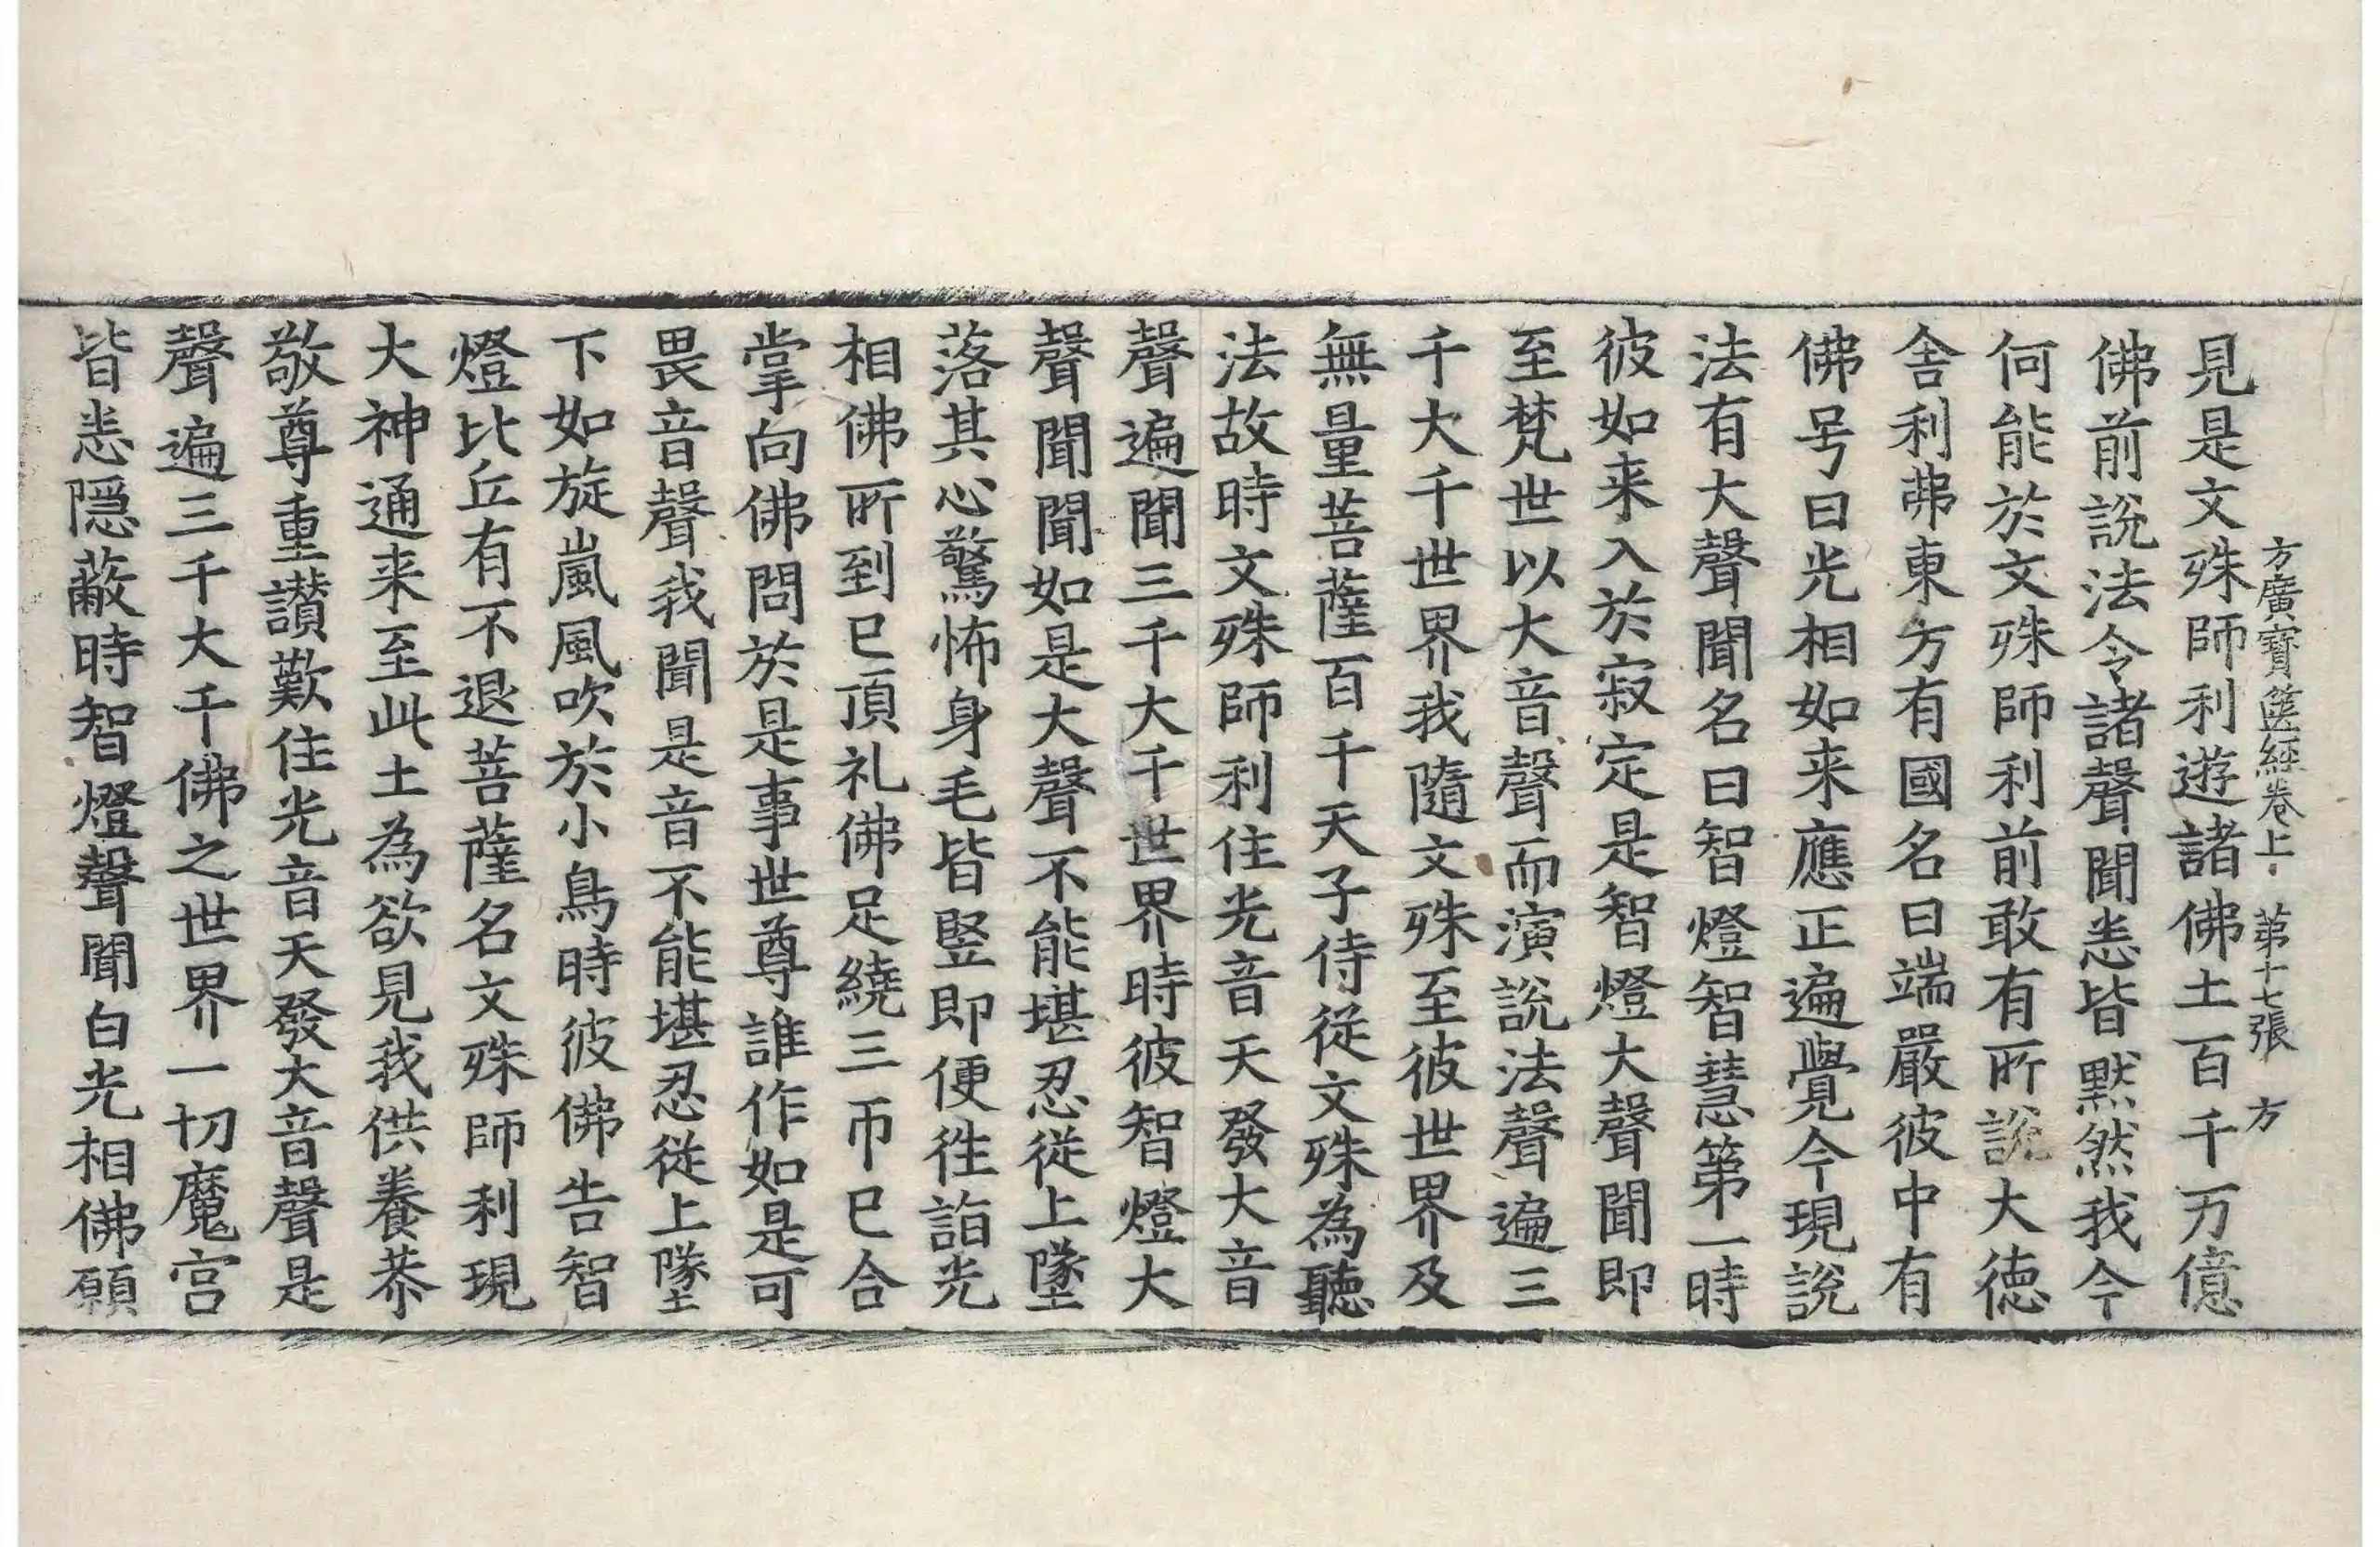 方廣寶篋經卷上 第十七張 方
見是文殊師利遊諸佛土百千万億
佛前說法令諸聲聞悉皆默然我今
何能於文殊師利前敢有所說大德
舍利弗東方有國名曰端嚴彼中有
佛号曰光相如来應正遍覺今現說
法有大聲聞名曰智燈智慧第一時
彼如来入於寂定是智燈大聲聞即
至梵世以大音聲而演說法聲遍三
千大千世界我隨文殊至彼世界及
無量菩薩百千天子侍從文殊為聽
法故時文殊師利住光音天發大音
聲遍聞三千大千世界時彼智燈大
聲聞聞如是大聲不能堪忍從上墜
落其心驚怖身毛皆竪即便徃詣光
相佛所到已頂礼佛足繞三帀已合
掌向佛問於是事世尊誰作如是可
畏音聲我聞是音不能堪忍從上墜
下如旋嵐風吹於小鳥時彼佛告智
燈比丘有不退菩薩名文殊師利現
大神通来至此土為欲見我供養恭
敬尊重讚歎住光音天發大音聲是
聲遍三千大千佛之世界一切魔宫
皆悉隱蔽時智燈聲聞白光相佛願